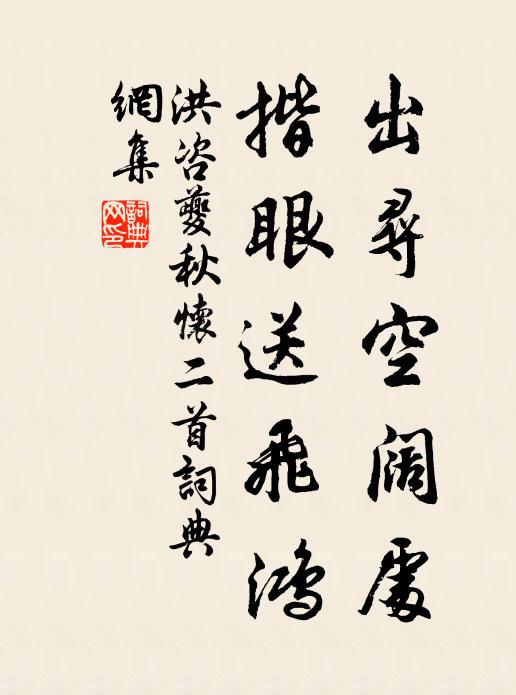 出尋空阔處
揩眼送飛鴻
洪咨夔秋懷二首詞典
網集
詞典
网印